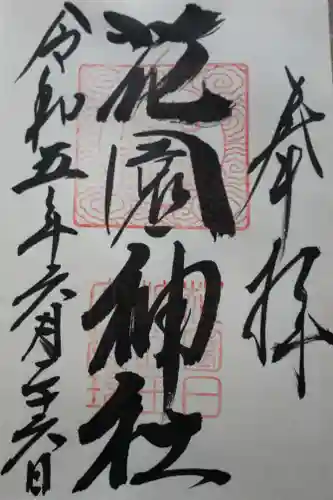 奉拝
花園神社
令和五年六月二十六日